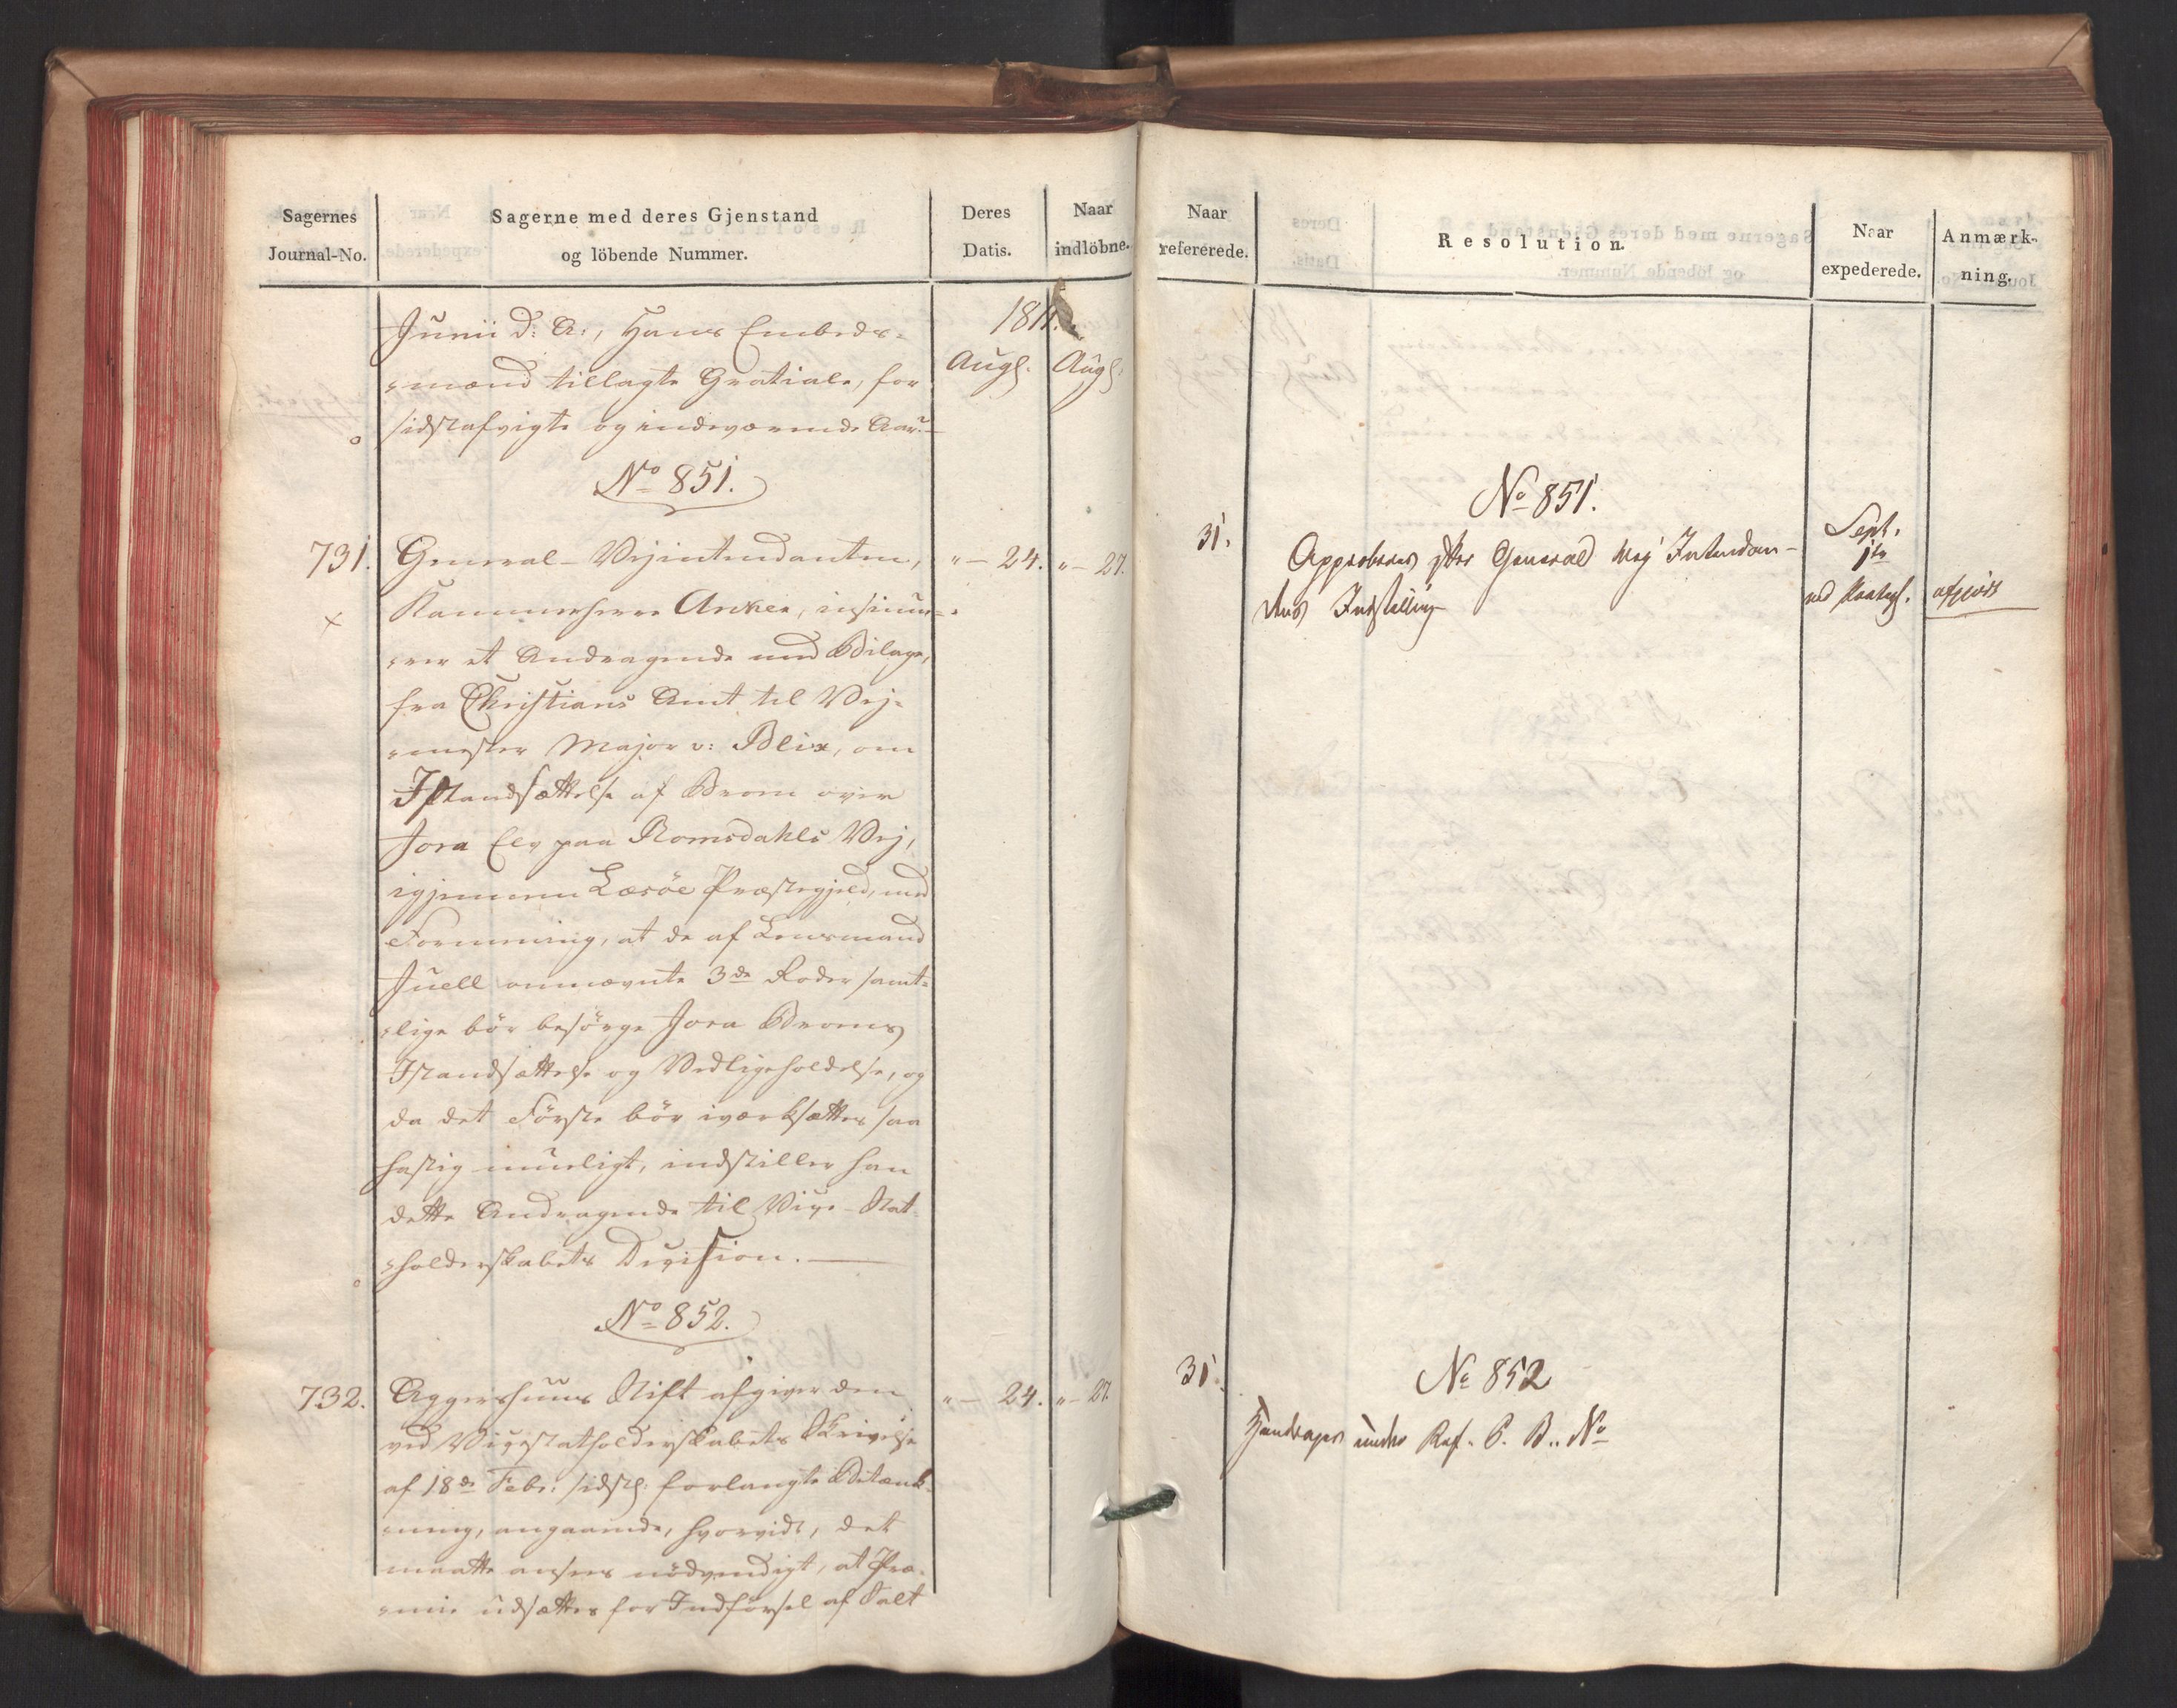 Sagernes
Journal-No.
Sagerne med deres Gjenstand
og löbende Nummer.
Deres
Datis.
Naar
indlöbne.
Junii d: A:, Hans Embeds-
mænd tillagte Gratiale, for
sidstafvigte og indeværende Aar.
1811.
Augs. Augs.
No 851.
731. General-Vejintendanten, " - 24. " - 27.
Kammerherre Anker, insinue-
rer et Andragende med Bilage,
fra Christians Amt til Vej-
mester Major v: Blix, om
Istandsættelse af Broen over
Jora Elv paa Romsdahls Vej,
igjennem Læsöe Præstegjeld, med
Formening, at de af Lensmand
Juell ommeldte 3de Roder samt-
lige bör besörge Jora Broens
Istandsættelse og Vedligeholdelse, og
da det Förste bör iværksættes saa
hastig mueligt, indstiller han
dette Andragende til Vice-Stat-
holderskabets Decision.
No 852.
732. Aggershuus Stift afgiver den " - 24. " - 27.
ved Vicestatholderskabets Skrivelse
af 18de Febr: sidstl: forlangte Betænk-
ning, angaaende, hvorvidt, det
maatte ansees nödvendigt, at Præ-
mie udsættes for Indförsel af Salt
Naar
refererede.
Resolution.
Naar
expederede.
Anmærk-
ning.
No 851.
31. Approberes efter General Vej Intendan-
tens Indstilling
Sept.
1te
ved Paategn. afgjort
No 852
31.
Henlægges under Ref. P. B. No